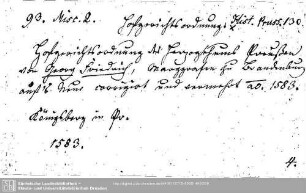 93. Misc. 2. Hofgerichtsordnung. Hist. Pruss. 130.
Hofgerichtsordnung des Herzogthums Preußen
von Georg Friedrich, Marggrafen zu Brandenburg
aufs Neue corrigirt und vermehrt ao. 1583.
Königsberg in Pr.
1583.
4.
Sächsische Landesbibliothek –
Staats- und Universitätsbibliothek Dresden